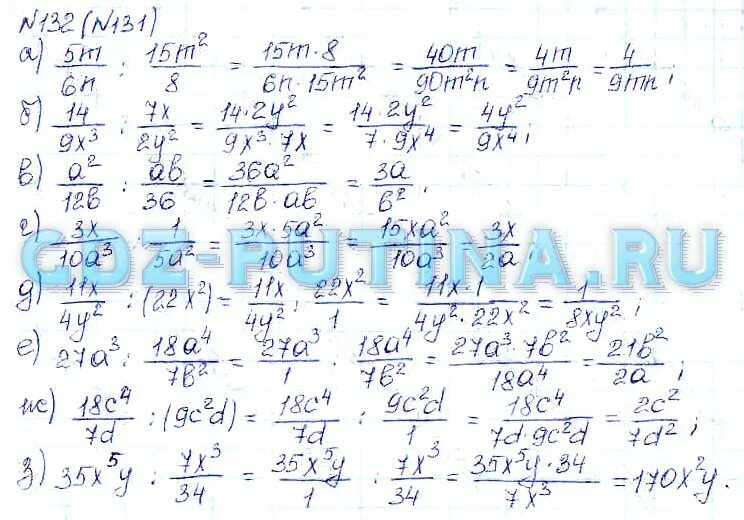 №132 (№131)
а) 5m/6n : 15m²/8 = 15m·8/6n·15m² = 40m/90m²n = 4m/9m²n = 4/9mn;
б) 14/9x³ : 7x/2y² = 14·2y²/9x³·7x = 14·2y²/7·9x⁴ = 4y²/9x⁴;
в) a²/12b : ab/36 = 36a²/12b·ab = 3a/b²;
г) 3x/10a³ : 1/5a² = 3x·5a²/10a³ = 15xa²/10a³ = 3x/2a;
GDZ-PUTINA.RU
д) 11x/4y² : (22x²) = 11x/4y² : 22x²/1 = 11x·1/4y²·22x² = 1/8xy²;
е) 27a³ : 18a⁴/7b² = 27a³/1 : 18a⁴/7b² = 27a³·7b²/18a⁴ = 21b²/2a;
ж) 18c⁴/7d : (9c²d) = 18c⁴/7d : 9c²d/1 = 18c⁴/7d·9c²d = 2c²/7d²;
з) 35x⁵y : 7x³/34 = 35x⁵y/1 : 7x³/34 = 35x⁵y·34/7x³ = 170x²y.